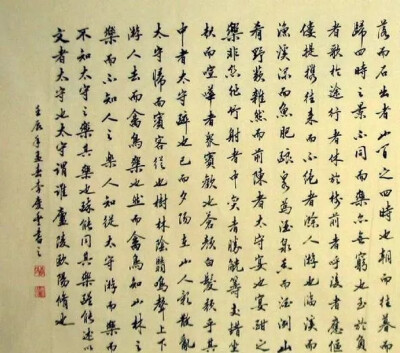 落而石出者山间之四時也朝而往暮而
歸四時之景不同而樂亦無窮也至於負
者歌於途行者休於樹前者呼後者應傴
僂提攜往来而不绝者滁人游也臨溪而
漁溪深而魚肥釀泉為酒泉香而酒洌山
肴野蔌雜然而前陳者太守宴也宴酣之
樂非丝非竹射者中弈者勝觥籌交错坐
起而喧嘩者眾賓歡也蒼顔白髮頹乎其
中者太守醉也已而夕陽在山人影散亂
太守歸而賓客從也樹林陰翳鳴聲上下
游人去而禽鳥樂也然而禽鳥知山林之
樂而不知人之樂人知從太守游而樂而
不知太守之樂其樂也醉能同其樂醒能述以
文者太守也太守謂誰廬陵歐陽脩也
壬辰年孟春李慶雲書之